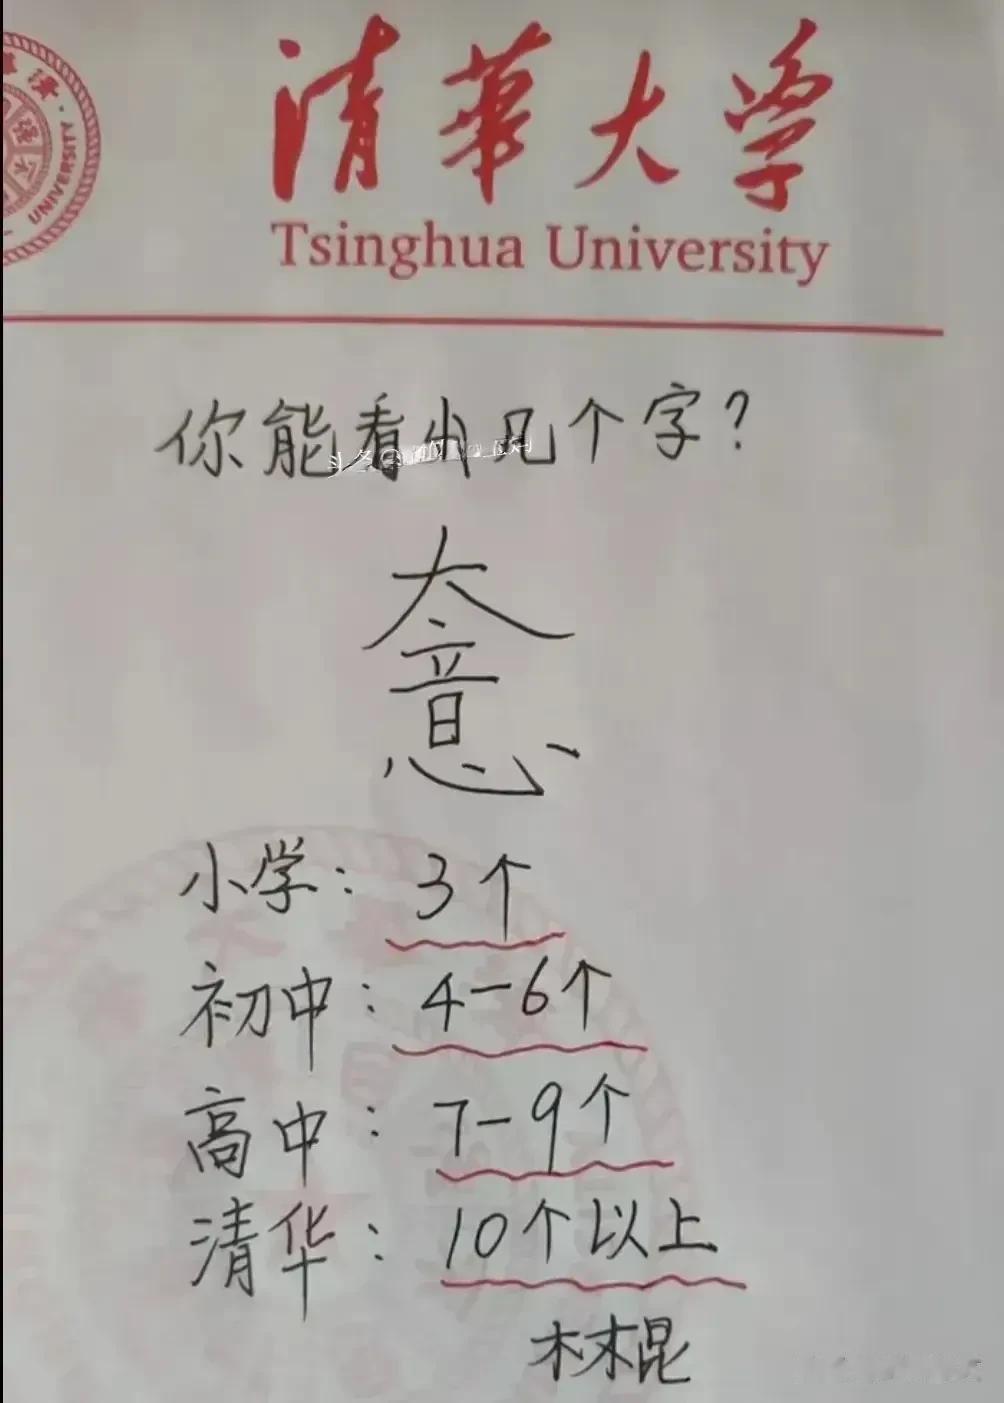 清華大学
Tsinghua University
UNIVERSITY
你能看出几个字?
大
音
心
小学: 3个
初中: 4-6个
高中: 7-9个
清华: 10个以上
林昆